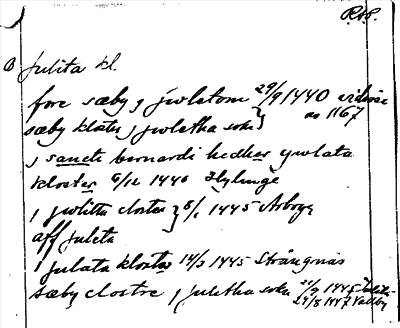 RAP.
Julita kl.
fore sæby j jwlatom 29/9 1440 vidim
sæby kloster j jwletha sokn } av 1167
j sancti bernardi hedher jwlata
kloster 6/12 1440
j jwlitta closter } 8/1 1445 Arboga
aff juleta
j julata kloster 14/3 1445 Strängnäs
sæby clostre j julitha sokn 1445
24/8 1447 Valby